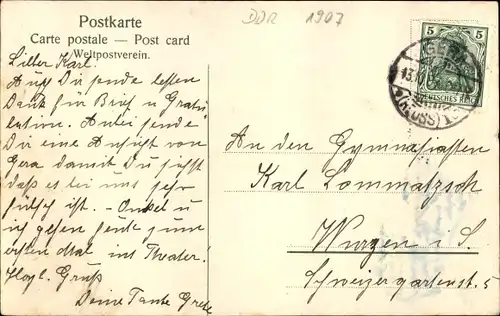 Postkarte
Carte postale — Post card
Weltpostverein.
DDR 1907
Lieber Karl.
Auch Du sende besten
Dank für Brief u Gratu
lation. Anbei sende
Du eine Ansicht von
Gera damit Du siehst
daß es bei uns sehr
hübsch ist. - Onkel u
ich gehen heute zum
ersten Mal ins Theater!
Hzgl. Gruß
Deine Tante Grete
5 5
GERA
13.10
(REUSS)
DEUTSCHES REICH
An den Gymnasiasten
Karl Lommatzsch
Wurzen i. S.
Schweizergartenst. 5